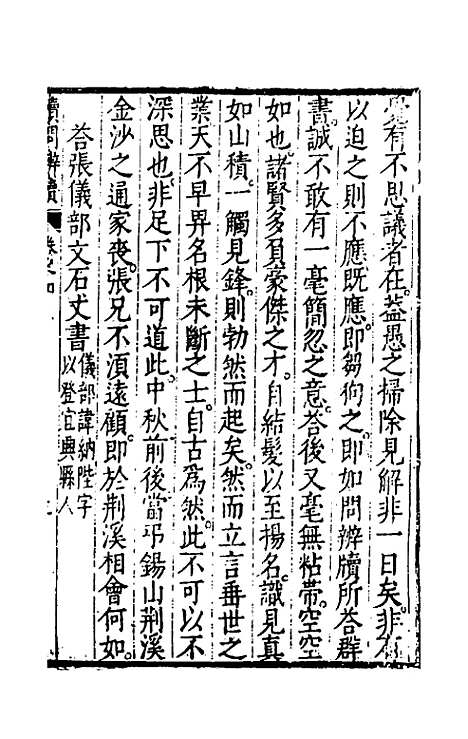 覺有不思議者在。蓋愚之掃除見解非一日矣。非有
以迫之則不應。既應即芻狗之。即如問辨牘所荅群
書。誠不敢有一毫簡忽之意。荅後又毫無粘帶。空空
如也。諸賢多負豪傑之才。自結髮以至揚名。識見真
如山積。一觸見鋒。則勃然而起矣。然而立言垂世之
業。天不早畀名根未斷之士。自古為然。此不可以不
深思也。非足下不可道此。中秋前後當弔錫山荊溪
金沙之通家喪。張兄不須遠顧。即於荊溪相會何如。
荅張儀部文石丈書
儀部諱納陛字
以登宜興縣人
續問辨牘
卷之四